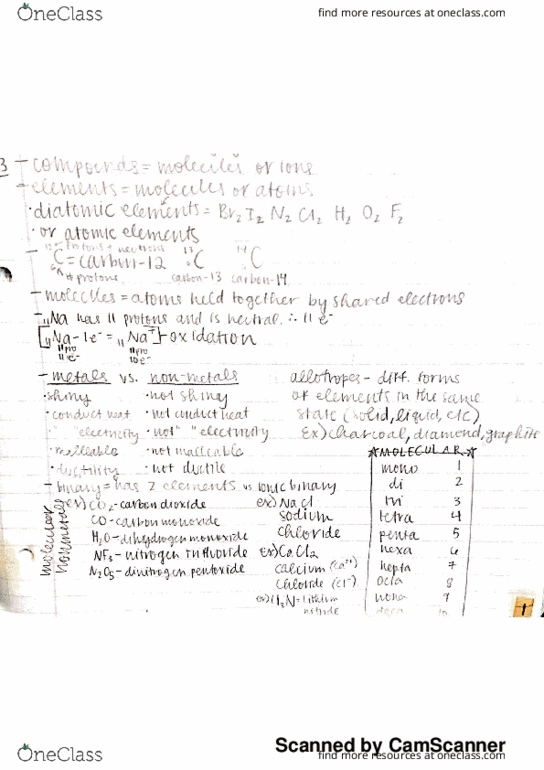 OneClass
find more resources at oneclass.com
3 - compounds = molecules or ions
- elements = molecules or atoms
· diatomic elements = Br2 I2 N2 Cl2 H2 O2 F2
· or atomic elements
12 protons + neutrons 13 14
- C = carbon-12 C C
6 # protons carbon-13 carbon-14
- molecules = atoms held together by shared electrons
- 11Na has 11 protons and is neutral. ∴ 11 e-
[11Na - 1e- = 11Na+] - oxidation
11 pro 11 pro
11 e- 10 e-
- metals vs. non-metals
· shiny · not shiny
· conduct heat · not conduct heat
· " "electricity · not " "electricity
· malleable · not malleable
· ductility · not ductile
allotropes - diff. forms
of elements in the same
state (solid, liquid, etc)
Ex) charcoal, diamond, graphite
- binary = has 2 elements vs ionic binary
molecular nonmetals
ex) CO2 - carbon dioxide
CO - carbon monoxide
H2O - dihydrogen monoxide
NF3 - nitrogen trifluoride
N2O5 - dinitrogen pentoxide
ex) NaCl
sodium
chloride
Ex) CaCl2
calcium (Ca2+)
chloride (Cl-)
ex) Li3N = lithium
nitride
☆MOLECULAR☆
mono 1
di 2
tri 3
tetra 4
penta 5
hexa 6
hepta 7
octa 8
nona 9
deca 10
1
Scanned by CamScanner
OneClass
find more resources at oneclass.com